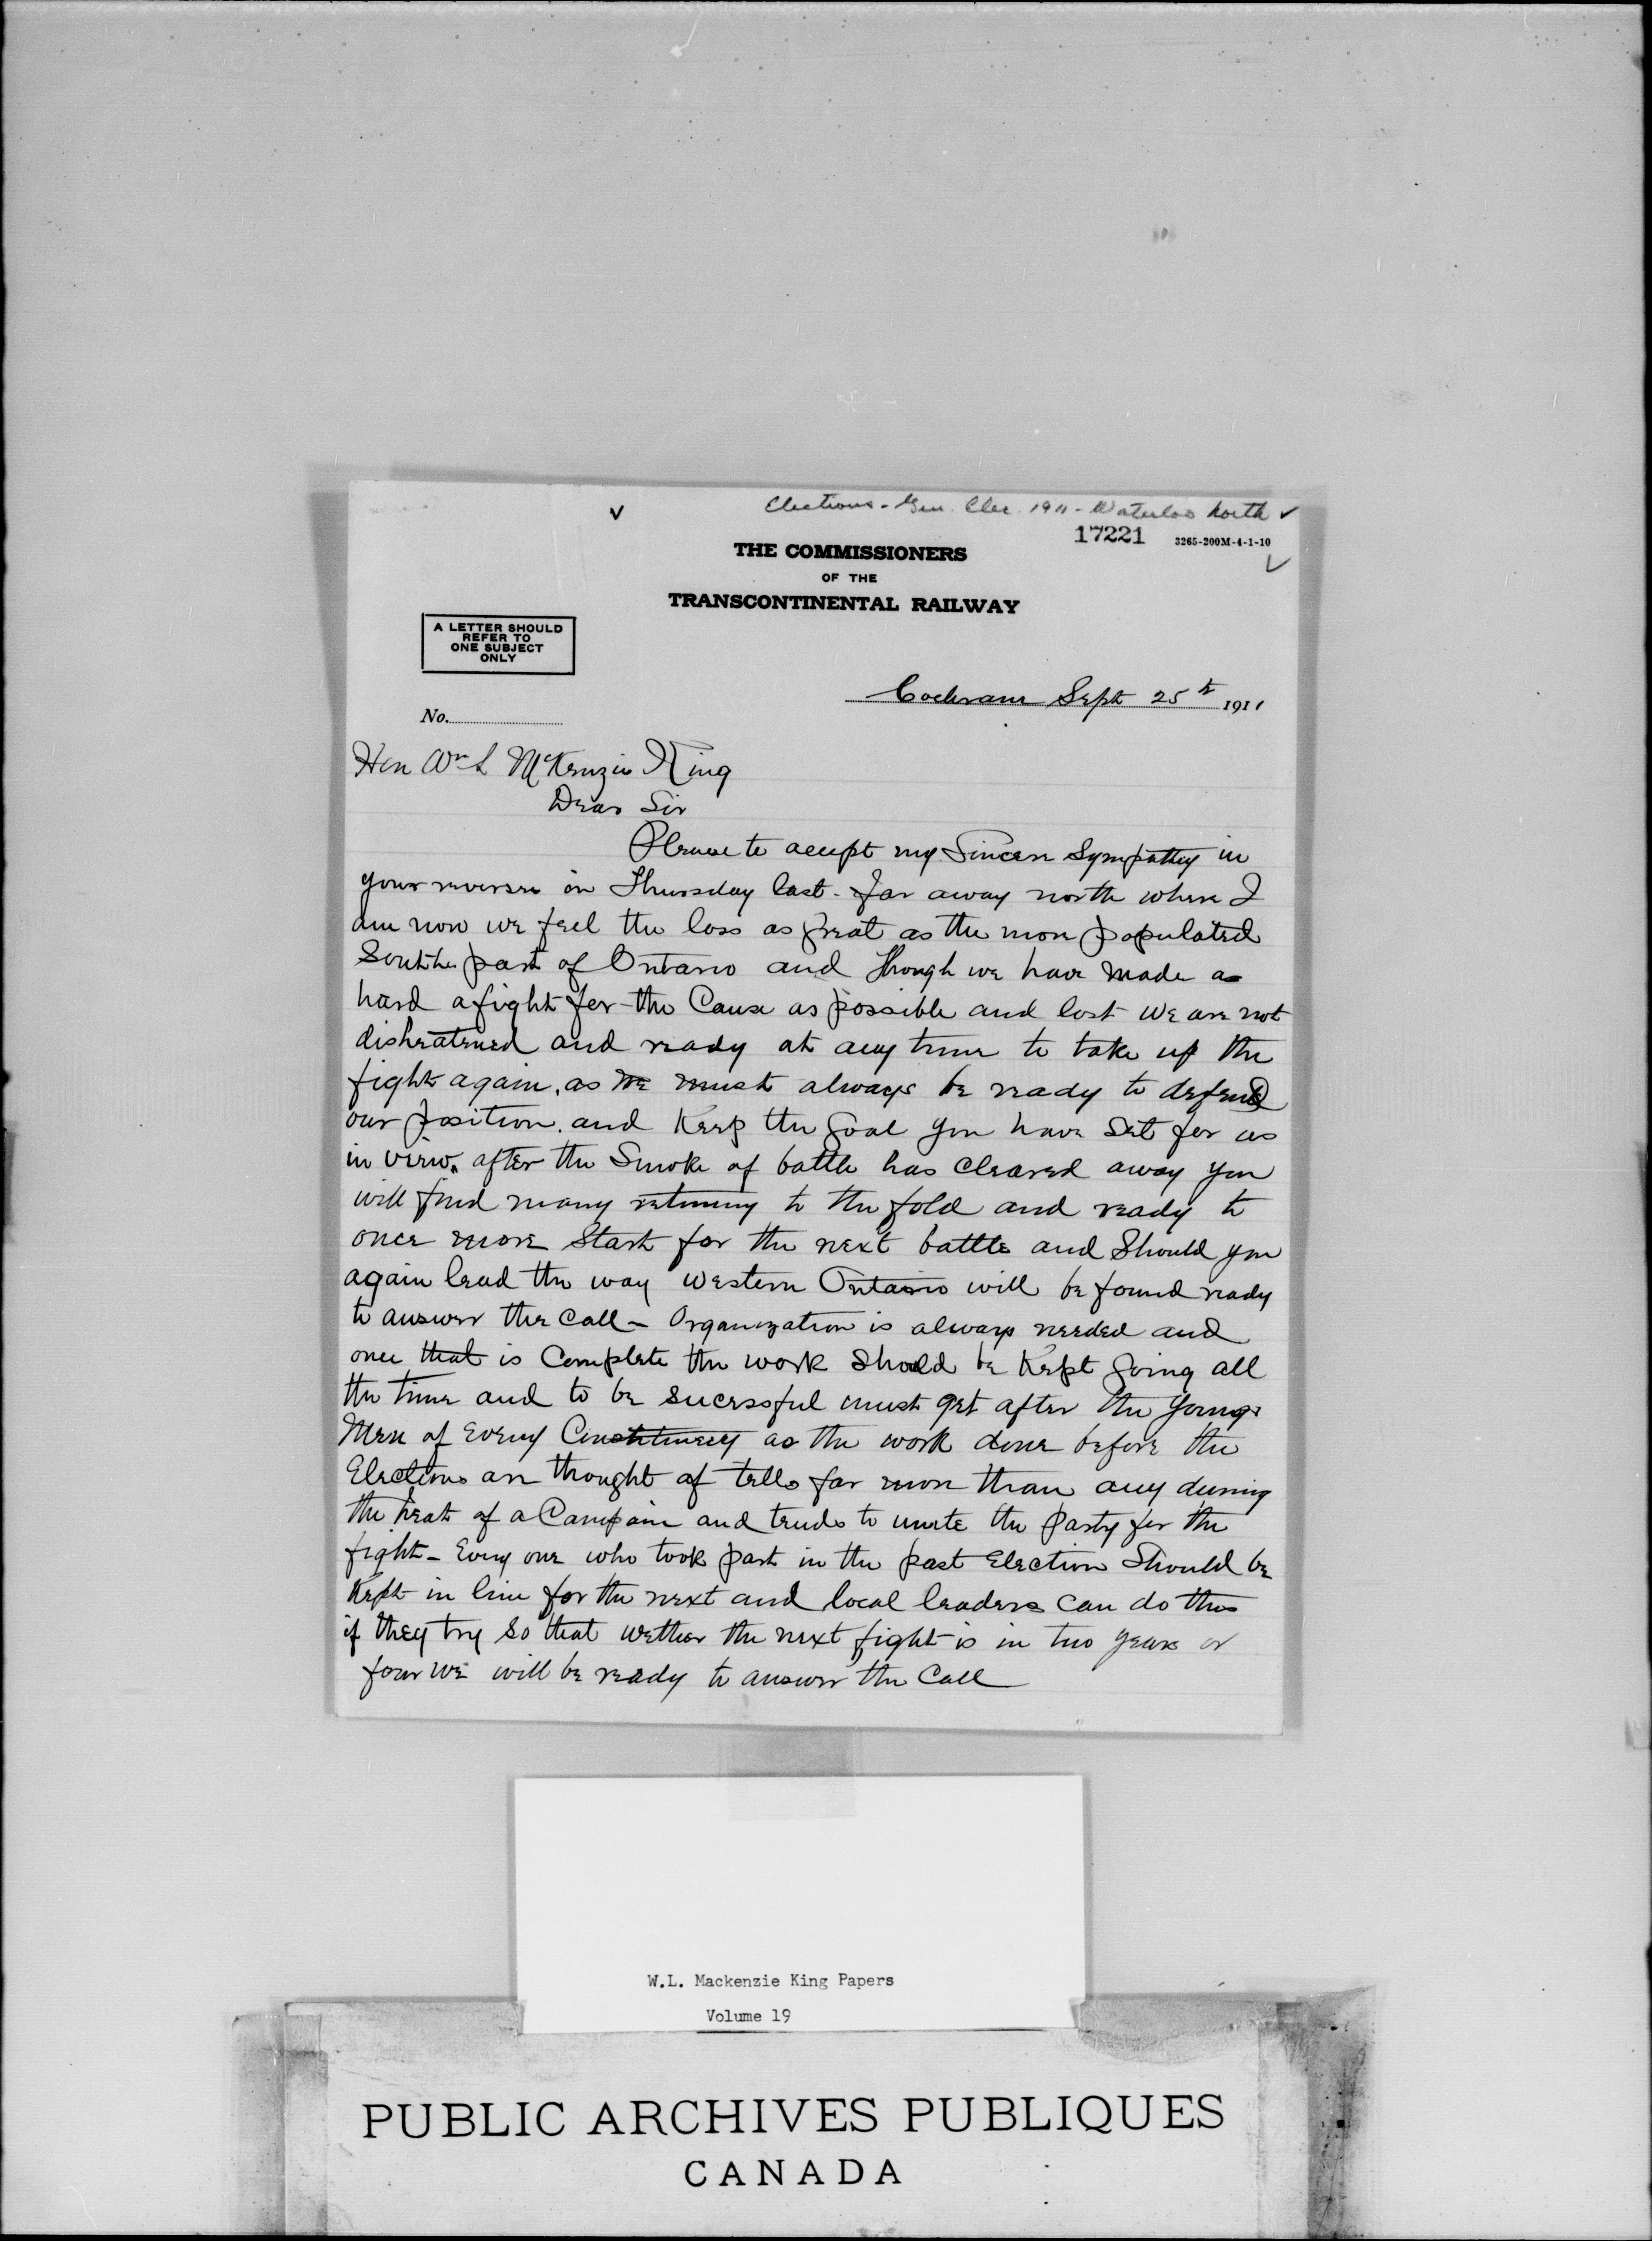 Elections - Gen. Elec. 1911 - Waterloo North
17221 3265-200M-4-1-10
THE COMMISSIONERS
OF THE
TRANSCONTINENTAL RAILWAY
A LETTER SHOULD
REFER TO
ONE SUBJECT
ONLY
Cochrane Sept 25th 1911
No.
Hon Wm L McKenzie King
Dear Sir
Please to accept my Sincere Sympathy in
your reverse on Thursday last - far away north where I
am now we feel the loss as great as the more populated
South part of Ontario and though we have made as
hard a fight for the Cause as possible and lost we are not
disheatened and ready at any time to take up the
fight again, as we must always be ready to defend
our position. and Keep the Goal you have Set for us
in view. after the Smoke of battle has Cleared away you
will find many returning to the fold and ready to
once more Start for the next battle and Should you
again lead the way Western Ontario will be found ready
to answer the Call - Organization is always needed and
once that is Complete the work Should be Kept Going all
the time and to be sucessful must get after the Young
Men of Every Constituency as the work done before the
Elections are thought of tells far more than any during
the heat of a Campain and tends to unite the party for the
fight - Every one who took part in the past Election Should be
Kept in line for the next and local leaders Can do this
if they try So that wether the next fight is in two years or
four we will be ready to answer the Call
W.L. Mackenzie King Papers
Volume 19
PUBLIC ARCHIVES PUBLIQUES
CANADA